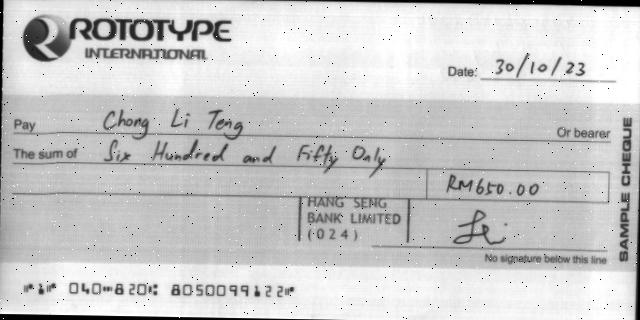 ROTOTYPE
INTERNATIONAL
Date: 30/10/23
Pay Chong Li Teng Or bearer
The sum of Six Hundred and Fifty Only
RM650.00
HANG SENG
BANK LIMITED
(024)
No signature below this line
SAMPLE CHEQUE
⑈1⑈ 040⑉820⑆ 8050099122⑈